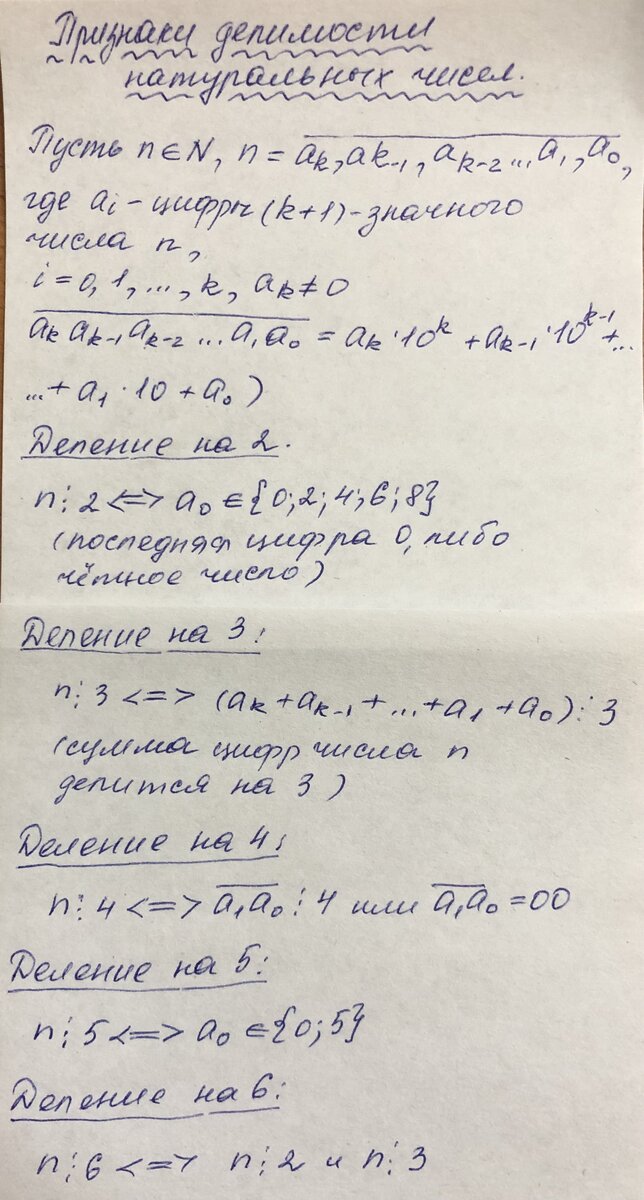 Признаки делимости
натуральных чисел.
Пусть n∈N, n = a̅ₖ̅,̅a̅ₖ̅₋̅₁̅,̅a̅ₖ̅₋̅₂̅.̅.̅.̅a̅₁̅,̅a̅₀̅,
где aᵢ – цифры (k+1)-значного
числа n,
i = 0, 1, ..., k, aₖ ≠ 0
a̅ₖ̅a̅ₖ̅₋̅₁̅a̅ₖ̅₋̅₂̅.̅.̅.̅a̅₁̅a̅₀̅ = aₖ·10ᵏ + aₖ₋₁·10ᵏ⁻¹ + ...
... + a₁ · 10 + a₀)
Деление на 2.
n⋮2 <=> a₀ ∈ {0; 2; 4; 6; 8}
(последняя цифра 0, либо
чётное число)
Деление на 3:
n⋮3 <=> (aₖ + aₖ₋₁ + ... + a₁ + a₀)⋮3
(сумма цифр числа n
делится на 3)
Деление на 4:
n⋮4 <=> a̅₁̅a̅₀̅⋮4 или a̅₁̅a̅₀̅ = 00
Деление на 5:
n⋮5 <=> a₀ ∈ {0; 5}
Деление на 6:
n⋮6 <=> n⋮2 и n⋮3